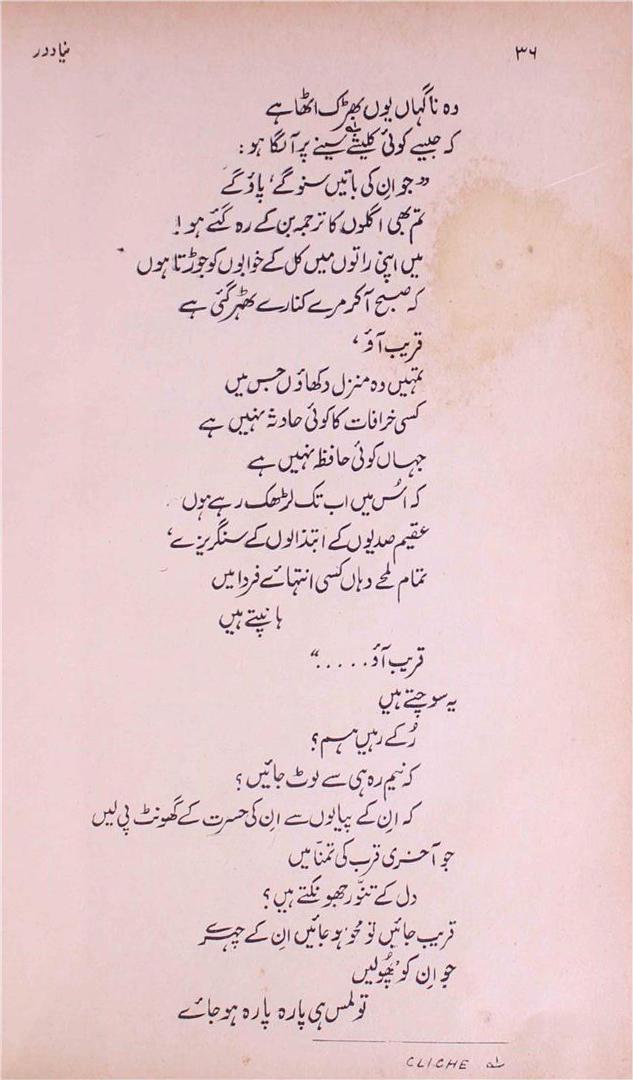 ۳۶
نیا دور
وہ ناگہاں یوں بھڑک اٹھا ہے
کہ جیسے کوئی کلیشے؎ سینے پر آ لگا ہو :
”جو ان کی باتیں سنو گے، پاؤ گے
تم بھی اگلوں کا ترجمہ بن کے رہ گئے ہو !
میں اپنی راتوں میں کل کے خوابوں کو جوڑتا ہوں
کہ صبح آ کر مرے کنارے ٹھہر گئی ہے
قریب آؤ ،
تمہیں وہ منزل دکھاؤں جس میں
کسی خرافات کا کوئی حادثہ نہیں ہے
جہاں کوئی حافظہ نہیں ہے
کہ اُس میں اب تک لڑھک رہے ہوں
عقیم صدیوں کے ابتذالوں کے سنگریزے،
تمام لمحے وہاں کسی انتہائے فردا میں
ہانپتے ہیں
قریب آؤ . . . . . “
یہ سوچتے ہیں
رُکے رہیں ہم ؟
کہ نیم رہ ہی سے لوٹ جائیں ؟
کہ اِن کے پیالوں سے ان کی حسرت کے گھونٹ پی لیں
جو آخری قرب کی تمنّا میں
دل کے تنّور جھونکتے ہیں ؟
قریب جائیں تو محو ہو جائیں اِن کے چہرے
جو اِن کو چھُولیں
تو لمس ہی پارہ پارہ ہو جائے
؎ CLICHE